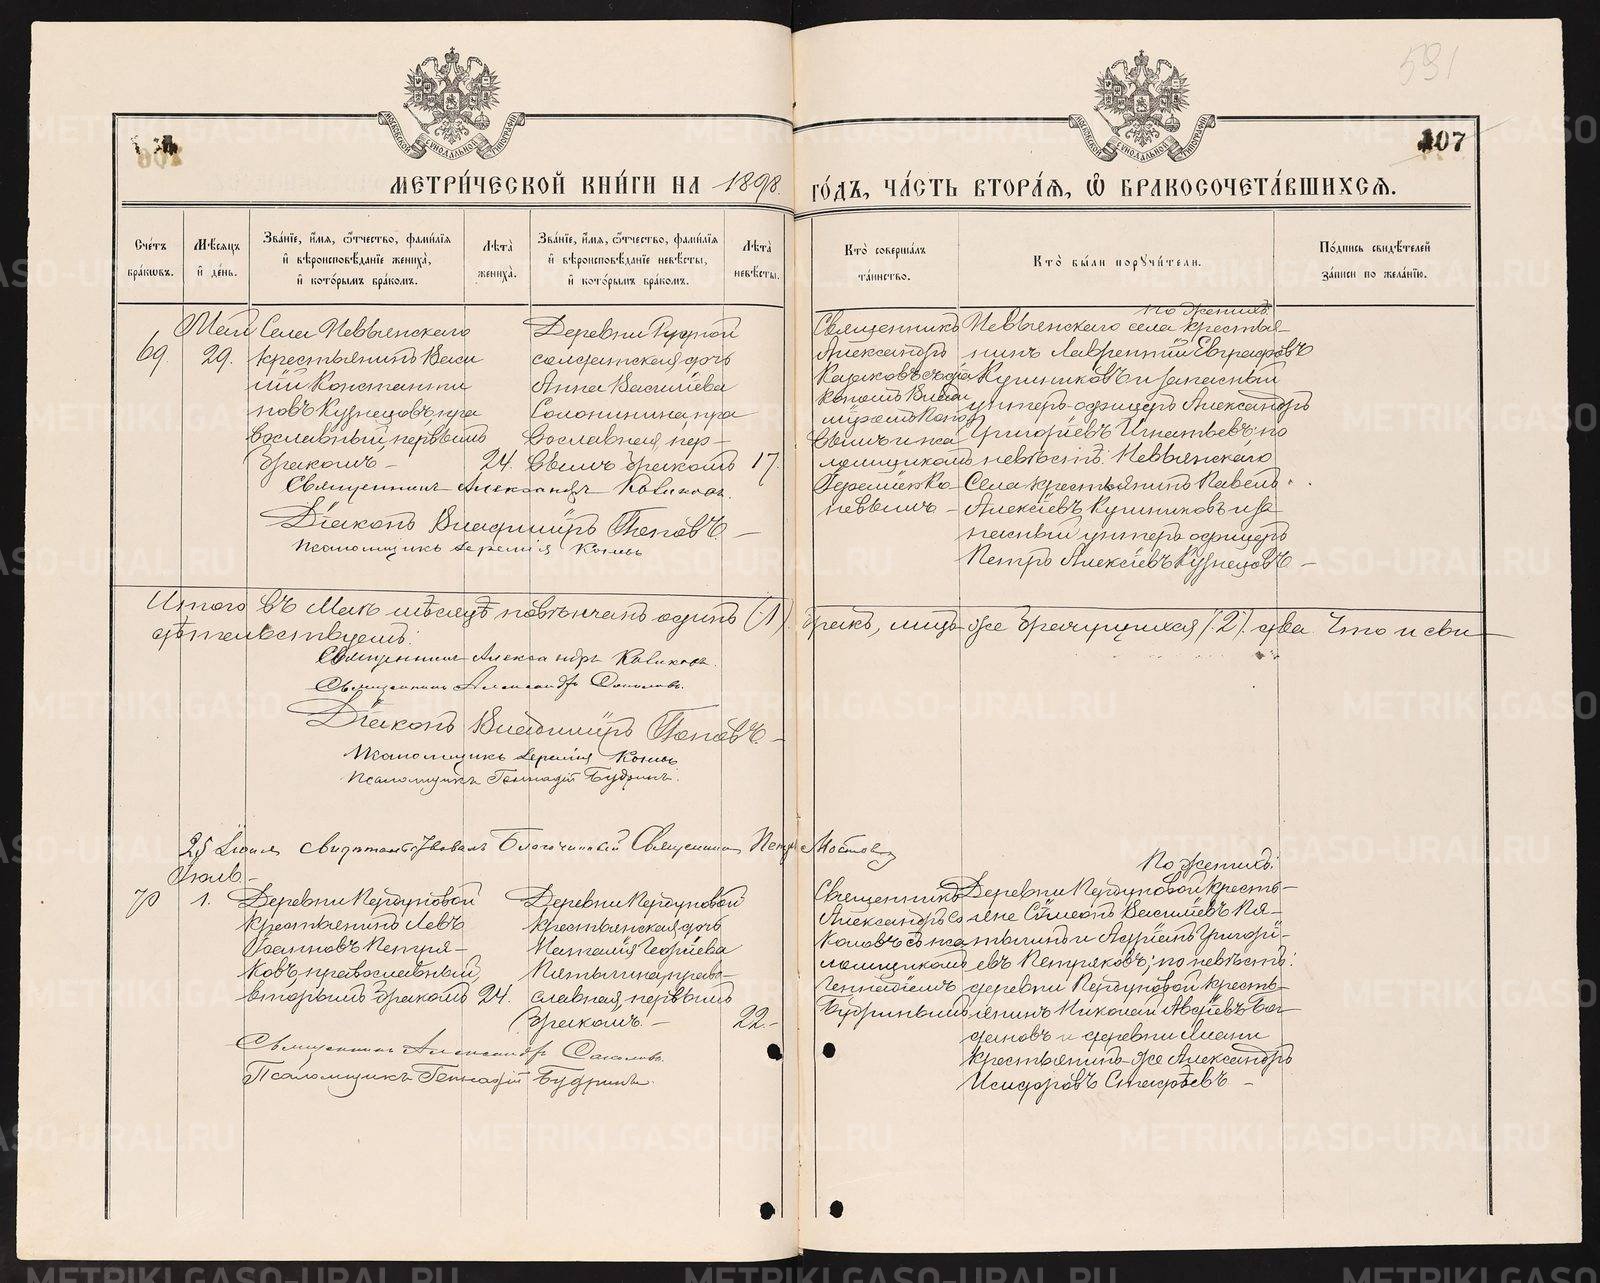 591
107
МЕТРИ́ЧЕСКОЙ КНИ́ГИ НА 1898 ГО́ДЪ, ЧА́СТЬ ВТОРА́Я, Ѽ БРАКОСОЧЕТА́ВШИХСЯ.
Сче́тъ бра́ковъ.
Мѣ́сяцъ и҆ де́нь.
Зва́нїе, и҆́мя, ѻ҆́тчество, фами́лїя и҆ вѣроисповѣ́данїе жениха̀, и҆ кото́рымъ бра́комъ.
Лѣ́та жениха̀.
Зва́нїе, и҆́мя, ѻ҆́тчество, фами́лїя и҆ вѣроисповѣ́данїе невѣ́сты, и҆ кото́рымъ бра́комъ.
Лѣ́та невѣ́сты.
Кто̀ соверша́лъ та́инство.
Кто̀ бы́ли поручи́тели.
По́дпись свидѣ́телей за́писи по жела́нїю.
69
Май
29.
Села Невьянскаго
крестьянинъ Васи
лій Константи
новъ Кузнецовъ, пра
вославный, первымъ
бракомъ –
24.
Деревни Рудной
солдатская дочь
Анна Василіева
Солонинина, пра
вославная, пер–
вымъ бракомъ
17.
Священникъ
Александръ
съ діа
кономъ Влади
міромъ Попо
вымъ и пса
ломщикомъ
Іереміею Ко
невымъ –
по женихѣ:
Невьянскаго села крестья–
нинъ Лаврентій Евграфовъ
Кушниковъ и запасный
унтеръ-офицеръ Александръ
Григорьевъ Игнатьевъ; по
невѣстѣ: Невьянскаго
Села крестьянинъ Павелъ
Алексіевъ Кушниковъ и за
пасный унтеръ офицеръ
Петръ Алексіевъ Кузнецовъ –
Священникъ Александръ
Діаконъ Владиміръ Поповъ. –
Псаломщикъ Іеремія Коневъ
Итого въ Маѣ мѣсяцѣ повѣнчанъ одинъ (1) бракъ, лицъ же брачущихся (2) два. Что и сви–
дѣтельствуемъ:
Священникъ Александръ
Священникъ Александръ Соколовъ.
Діаконъ Владиміръ Поповъ. –
Псаломщикъ Іеремія Коневъ
Псаломщикъ Геннадій Будринъ.
25 Іюня свидѣтельствовалъ Благочинный Священникъ Петръ
Іюль –
70
1.
Деревни Пердуновой
крестьянинъ Левъ
Іоанновъ Петря–
ковъ, православный,
вторымъ бракомъ
24.
Деревни Пердуновой
крестьянская дочь
Наталія Георгіева
Пятыгина, право–
славная, первымъ
бракомъ. –
22. –
Священникъ
Александръ Со
коловъ съ пса
ломщикомъ
Геннадіемъ
Будринымъ
По женихѣ:
Деревни Пердуновой кресть–
яне Сѵмеонъ Василіевъ Пя–
тыгинъ и Адріанъ Григорі–
евъ Петряковъ; по невѣстѣ:
деревни Пердуновой кресть–
янинъ Николай Авдіевъ Бог
дановъ и деревни
крестьянинъ-же Александръ
Исидоровъ Стафѣевъ. –
Священникъ Александръ Соколовъ.
Псаломщикъ Геннадій Будринъ.
METRIKI.GASO-URAL.RU